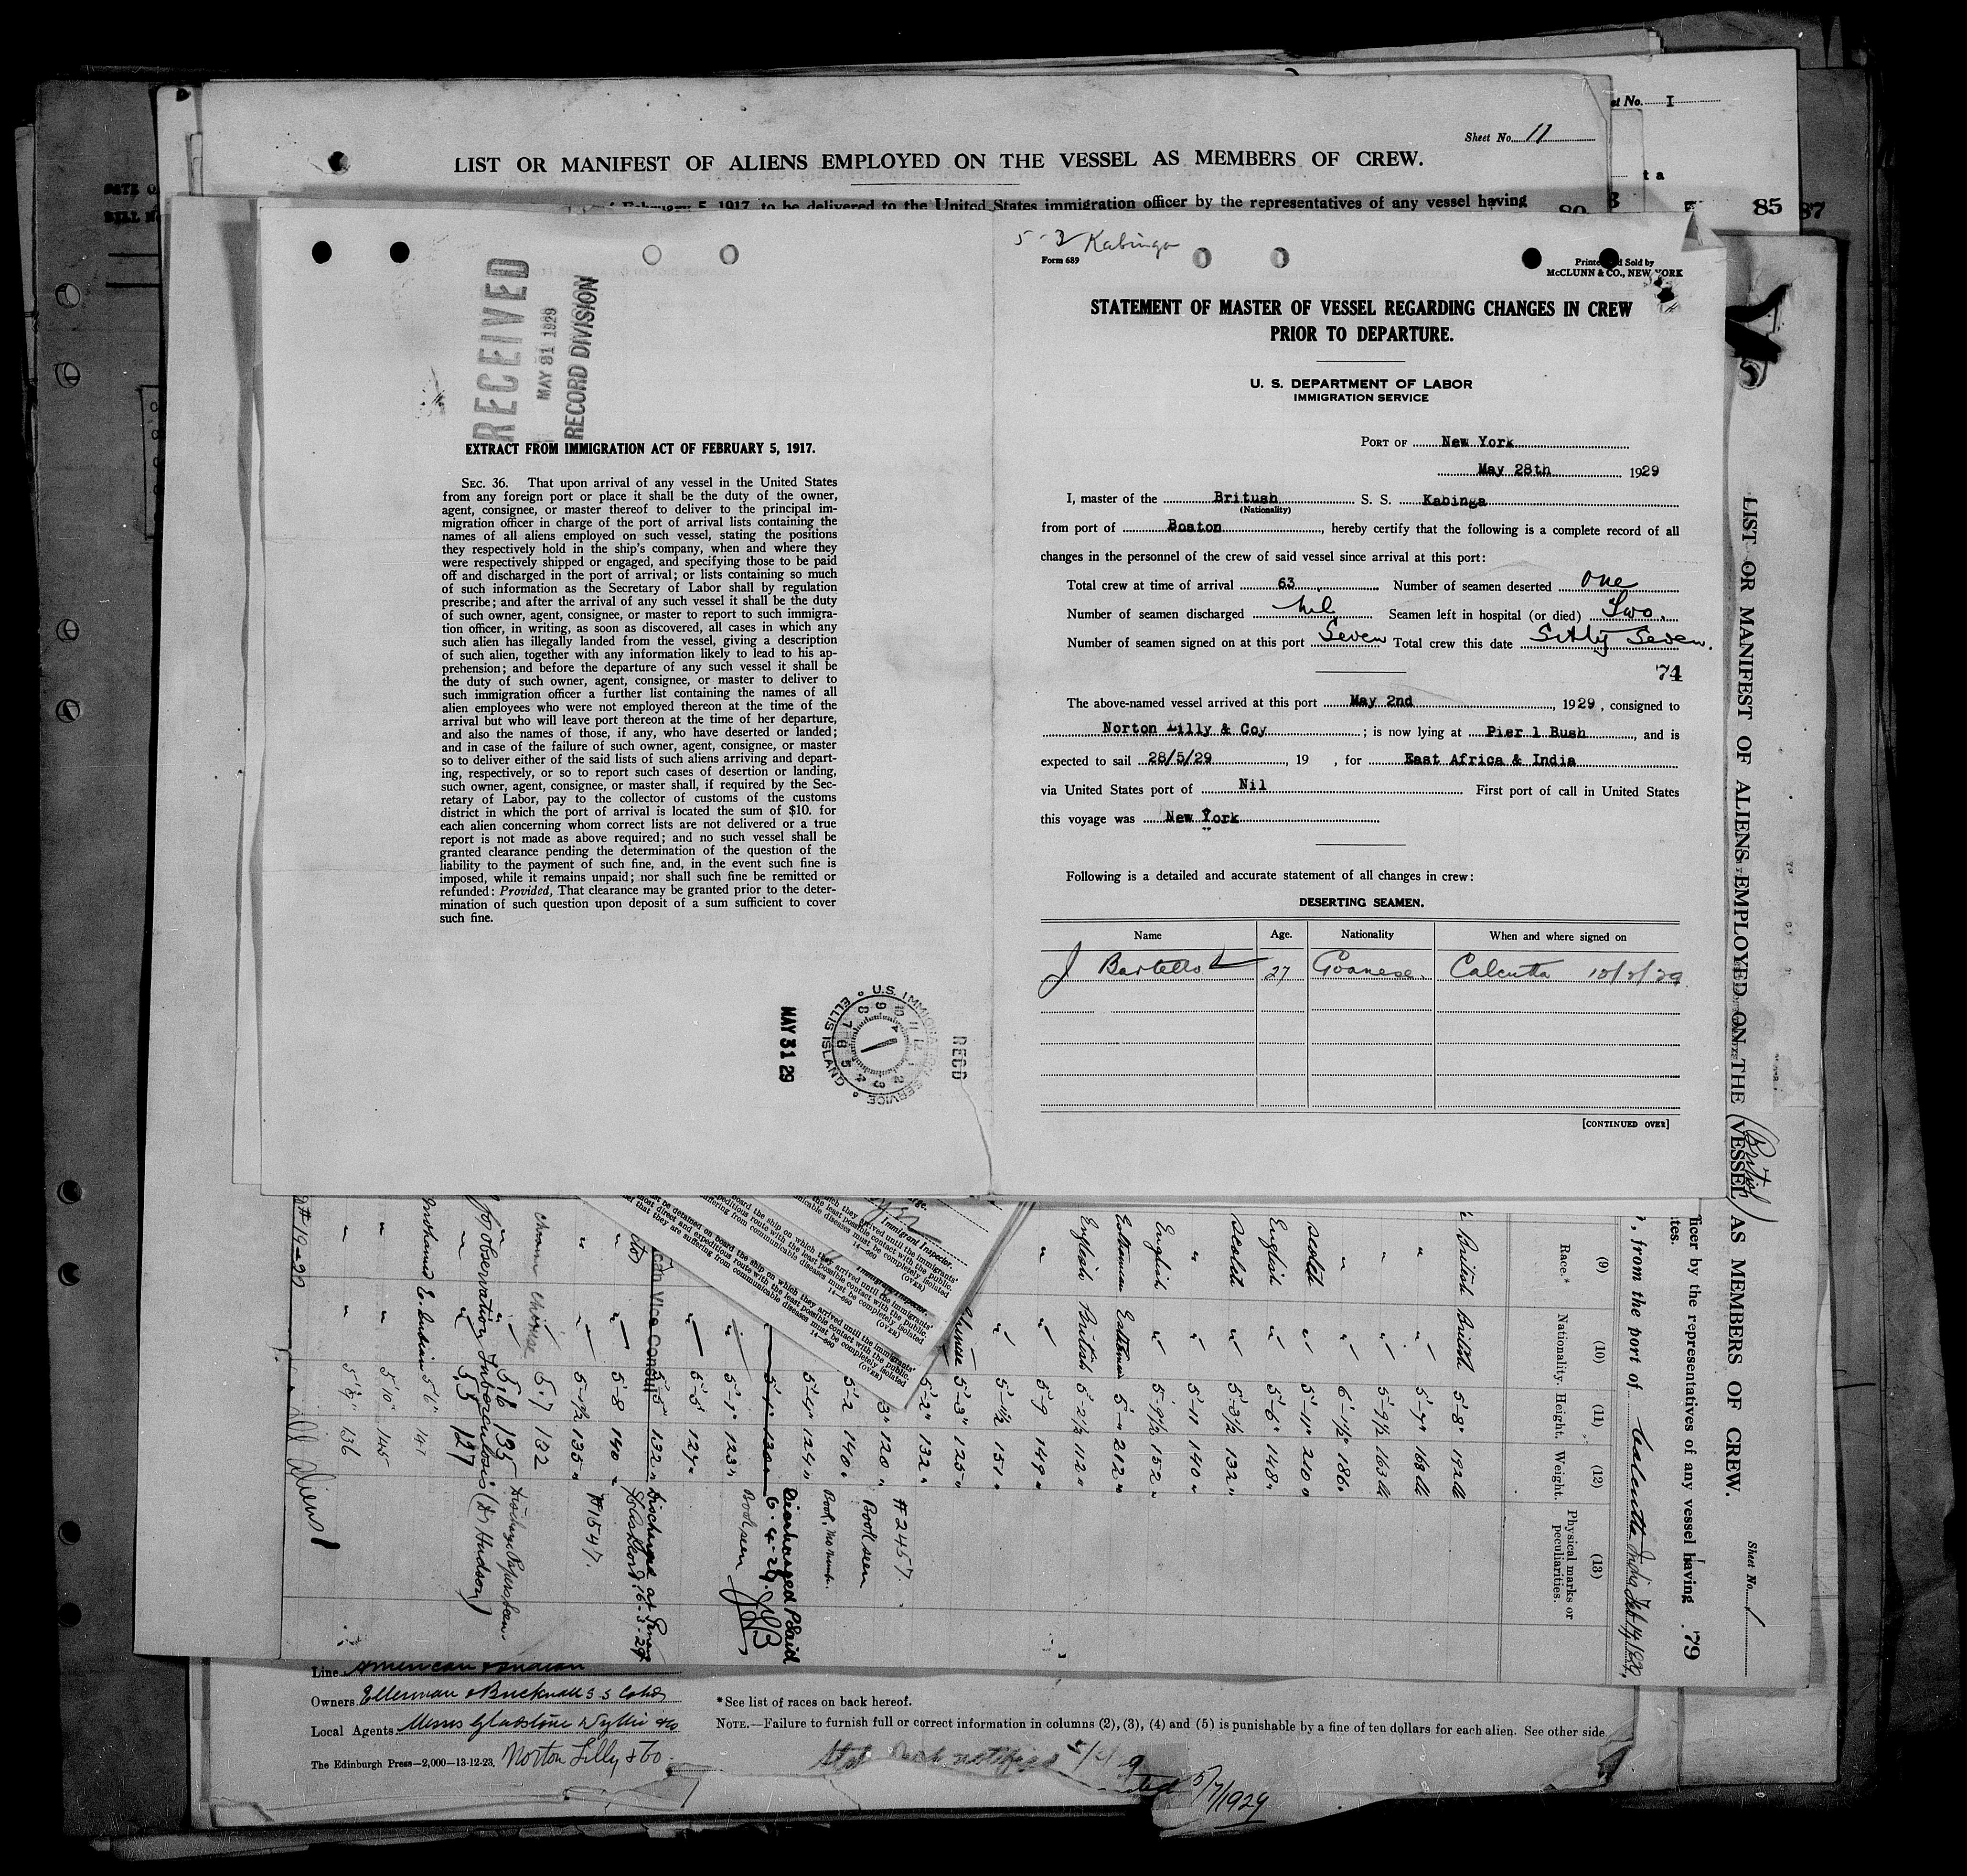 Sheet No. 11
LIST OR MANIFEST OF ALIENS EMPLOYED ON THE VESSEL AS MEMBERS OF CREW.
February 5, 1917, to be delivered to the United States immigration officer by the representatives of any vessel having
et No. I
t a
85
87
RECEIVED
MAY 31 1929
RECORD DIVISION
EXTRACT FROM IMMIGRATION ACT OF FEBRUARY 5, 1917.
SEC. 36. That upon arrival of any vessel in the United States
from any foreign port or place it shall be the duty of the owner,
agent, consignee, or master thereof to deliver to the principal im-
migration officer in charge of the port of arrival lists containing the
names of all aliens employed on such vessel, stating the positions
they respectively hold in the ship's company, when and where they
were respectively shipped or engaged, and specifying those to be paid
off and discharged in the port of arrival; or lists containing so much
of such information as the Secretary of Labor shall by regulation
prescribe; and after the arrival of any such vessel it shall be the duty
of such owner, agent, consignee, or master to report to such immigra-
tion officer, in writing, as soon as discovered, all cases in which any
such alien has illegally landed from the vessel, giving a description
of such alien, together with any information likely to lead to his ap-
prehension; and before the departure of any such vessel it shall be
the duty of such owner, agent, consignee, or master to deliver to
such immigration officer a further list containing the names of all
alien employees who were not employed thereon at the time of the
arrival but who will leave port thereon at the time of her departure,
and also the names of those, if any, who have deserted or landed;
and in case of the failure of such owner, agent, consignee, or master
so to deliver either of the said lists of such aliens arriving and depart-
ing, respectively, or so to report such cases of desertion or landing,
such owner, agent, consignee, or master shall, if required by the Sec-
retary of Labor, pay to the collector of customs of the customs
district in which the port of arrival is located the sum of $10. for
each alien concerning whom correct lists are not delivered or a true
report is not made as above required; and no such vessel shall be
granted clearance pending the determination of the question of the
liability to the payment of such fine, and, in the event such fine is
imposed, while it remains unpaid; nor shall such fine be remitted or
refunded: Provided, That clearance may be granted prior to the deter-
mination of such question upon deposit of a sum sufficient to cover
such fine.
MAY 31 29
U.S. IMMIGRATION SERVICE
ELLIS ISLAND
RECD
5-2 Kabinga
Form 689
Printed and Sold by
McCLUNN & CO., NEW YORK
STATEMENT OF MASTER OF VESSEL REGARDING CHANGES IN CREW
PRIOR TO DEPARTURE.
U. S. DEPARTMENT OF LABOR
IMMIGRATION SERVICE
PORT OF New York
May 28th 1929
I, master of the Britush S. S. Kabinga
(Nationality)
from port of Boston, hereby certify that the following is a complete record of all
changes in the personnel of the crew of said vessel since arrival at this port:
Total crew at time of arrival 63 Number of seamen deserted one
Number of seamen discharged Nil Seamen left in hospital (or died) Two.
Number of seamen signed on at this port Seven Total crew this date Sixty Seven.
74
The above-named vessel arrived at this port May 2nd, 1929, consigned to
Norton Lilly & Coy; is now lying at Pier 1 Bush, and is
expected to sail 28/5/29, 19 , for East Africa & India
via United States port of Nil First port of call in United States
this voyage was New York
Following is a detailed and accurate statement of all changes in crew:
DESERTING SEAMEN.
Name Age. Nationality When and where signed on
J Bartello 27 Goanese. Calcutta 10/2/29
[CONTINUED OVER]
LIST OR MANIFEST OF ALIENS EMPLOYED ON THE (VESSEL) AS MEMBERS OF CREW.
British
Sheet No. 1
officer by the representatives of any vessel having
79
, from the port of Calcutta India Feb 14 1929,
(9) Race.*
(10) Nationality.
(11) Height.
(12) Weight.
(13) Physical marks or peculiarities.
British British 5-8" 192 lb
" " 5-7" 168 lb
" " 5-9½ 163 lb
" " 6-1½ 186
Scotch " 5-11" 210 "
English " 5-6" 148 "
Scotch " 5-3½ 132 "
" " 5-11 140 "
English " 5-9½ 152 "
5- " 212 "
English British 5-2½ 112 "
" " 5-9 149 "
" 5-1½ 151 "
Chinese 5-3" 125 "
5-2" 132 "
3" 120 " #2457.
5-2 140 " Book seen
5-4" 124 " Book, no number.
Discharged P Said
6-4-29. JHB
5-1" 123 " Book seen
5-5 127 "
5-5" 132 " Discharged at
16-3-29
Vice Consul
5-8 140 "
5-1½ 135 " #1547.
chinese 5.7 132
5.6 135
5.5 127
for observation Tuberculosis (Dr Hudson)
Mohamed E. Indian 5'6" 141
" " 5'10" 145
" " 136
#19-27
all aliens
Immigrant Inspector.
(OVER)
14-660
be detained on board the ship on which they arrived until the immigrants'
most direct and expeditious route with the least possible contact with the public.
that they are suffering from communicable diseases must be completely isolated
Line American & Indian
Owners Ellerman & Bucknall S S Co Ltd
Local Agents Messrs Gladstone Wyllie & Co
The Edinburgh Press—2,000—13-12-23. Norton Lilly & Co.
*See list of races on back hereof.
NOTE.—Failure to furnish full or correct information in columns (2), (3), (4) and (5) is punishable by a fine of ten dollars for each alien. See other side
5/7/1929